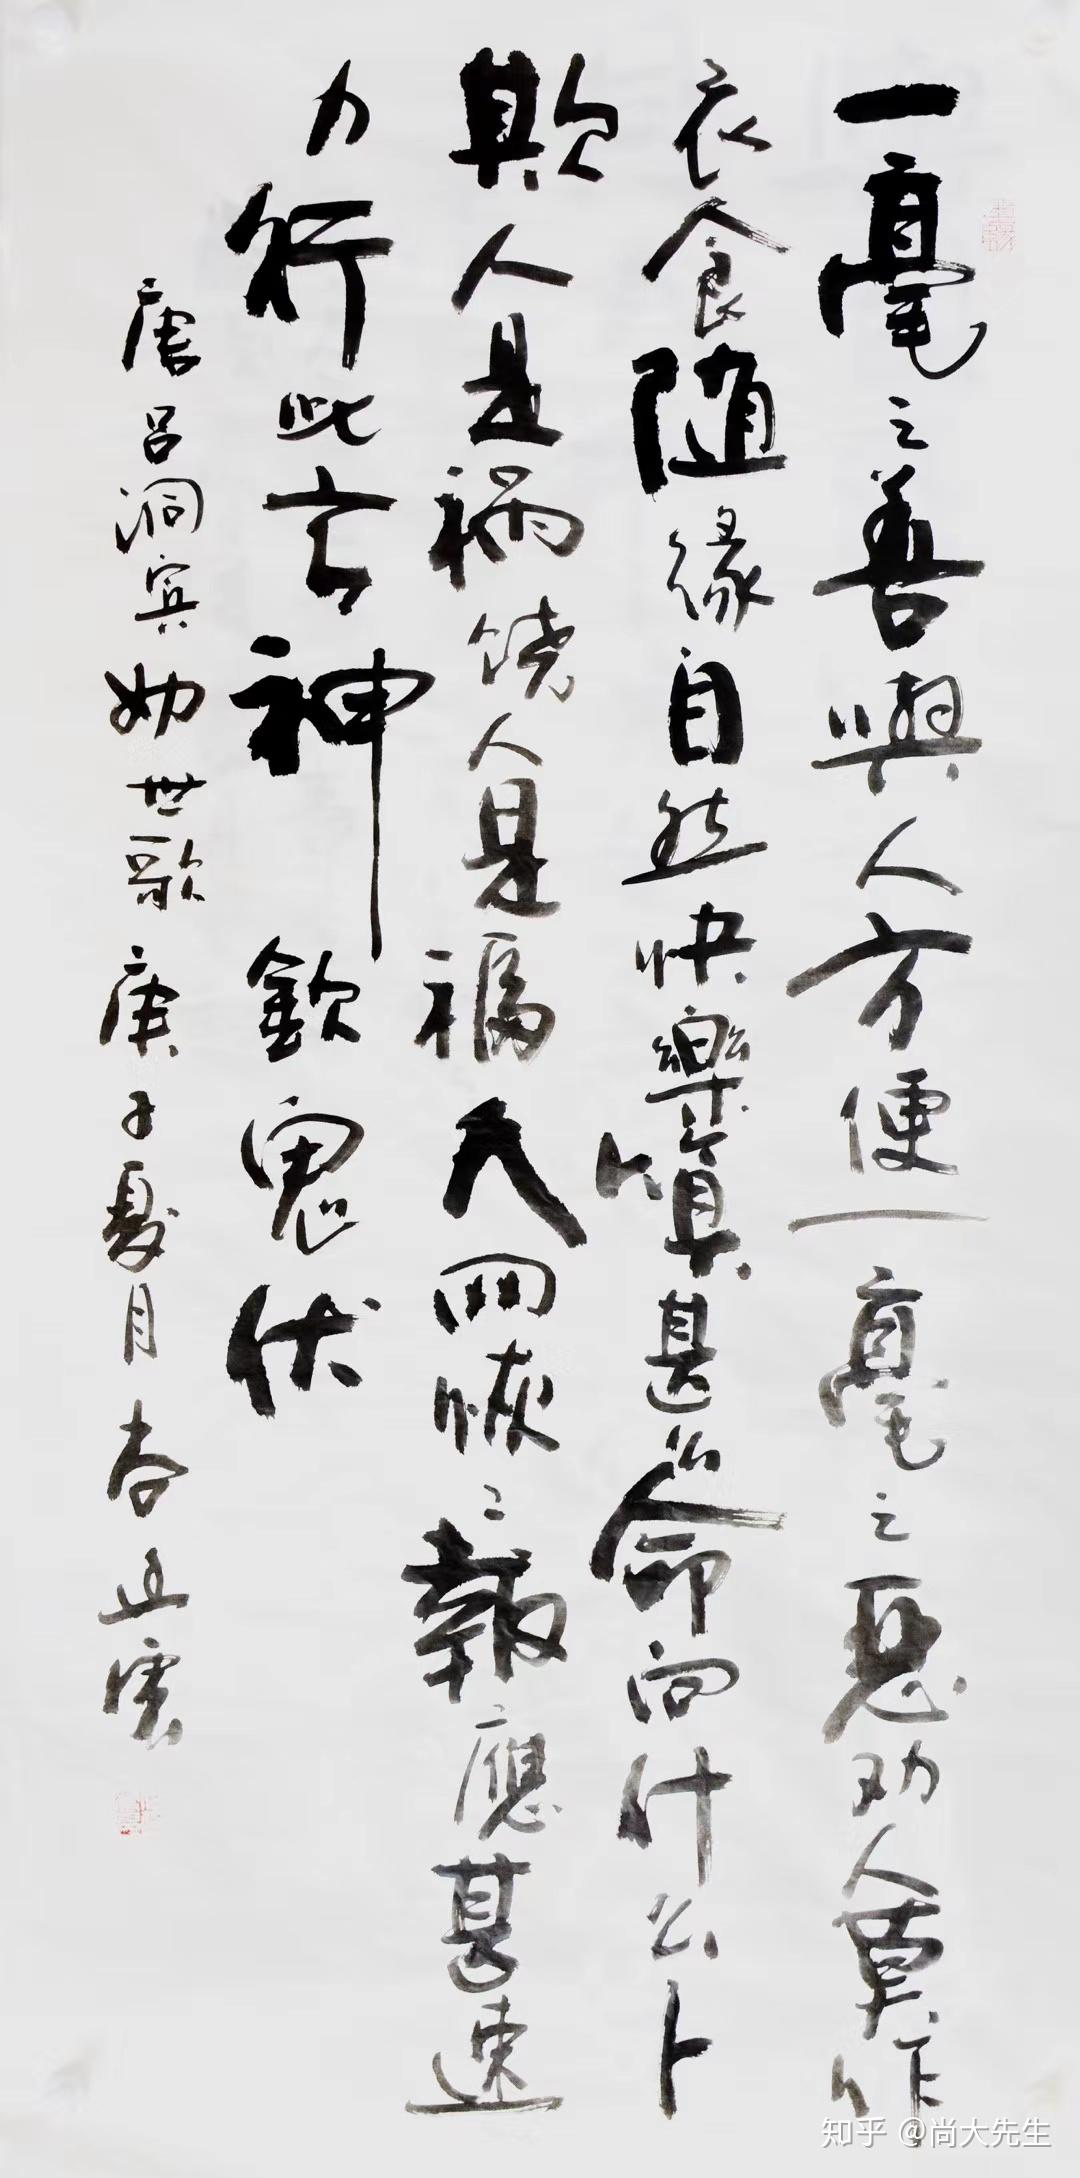 一毫之善與人方便一毫之惡劝人莫作
衣食随缘自然快樂算甚么命问什么卜
欺人是祸饶人是福天网恢々報應甚速
力行此言神欽鬼伏
唐吕洞宾劝世歌庚子夏月
知乎 @尚大先生